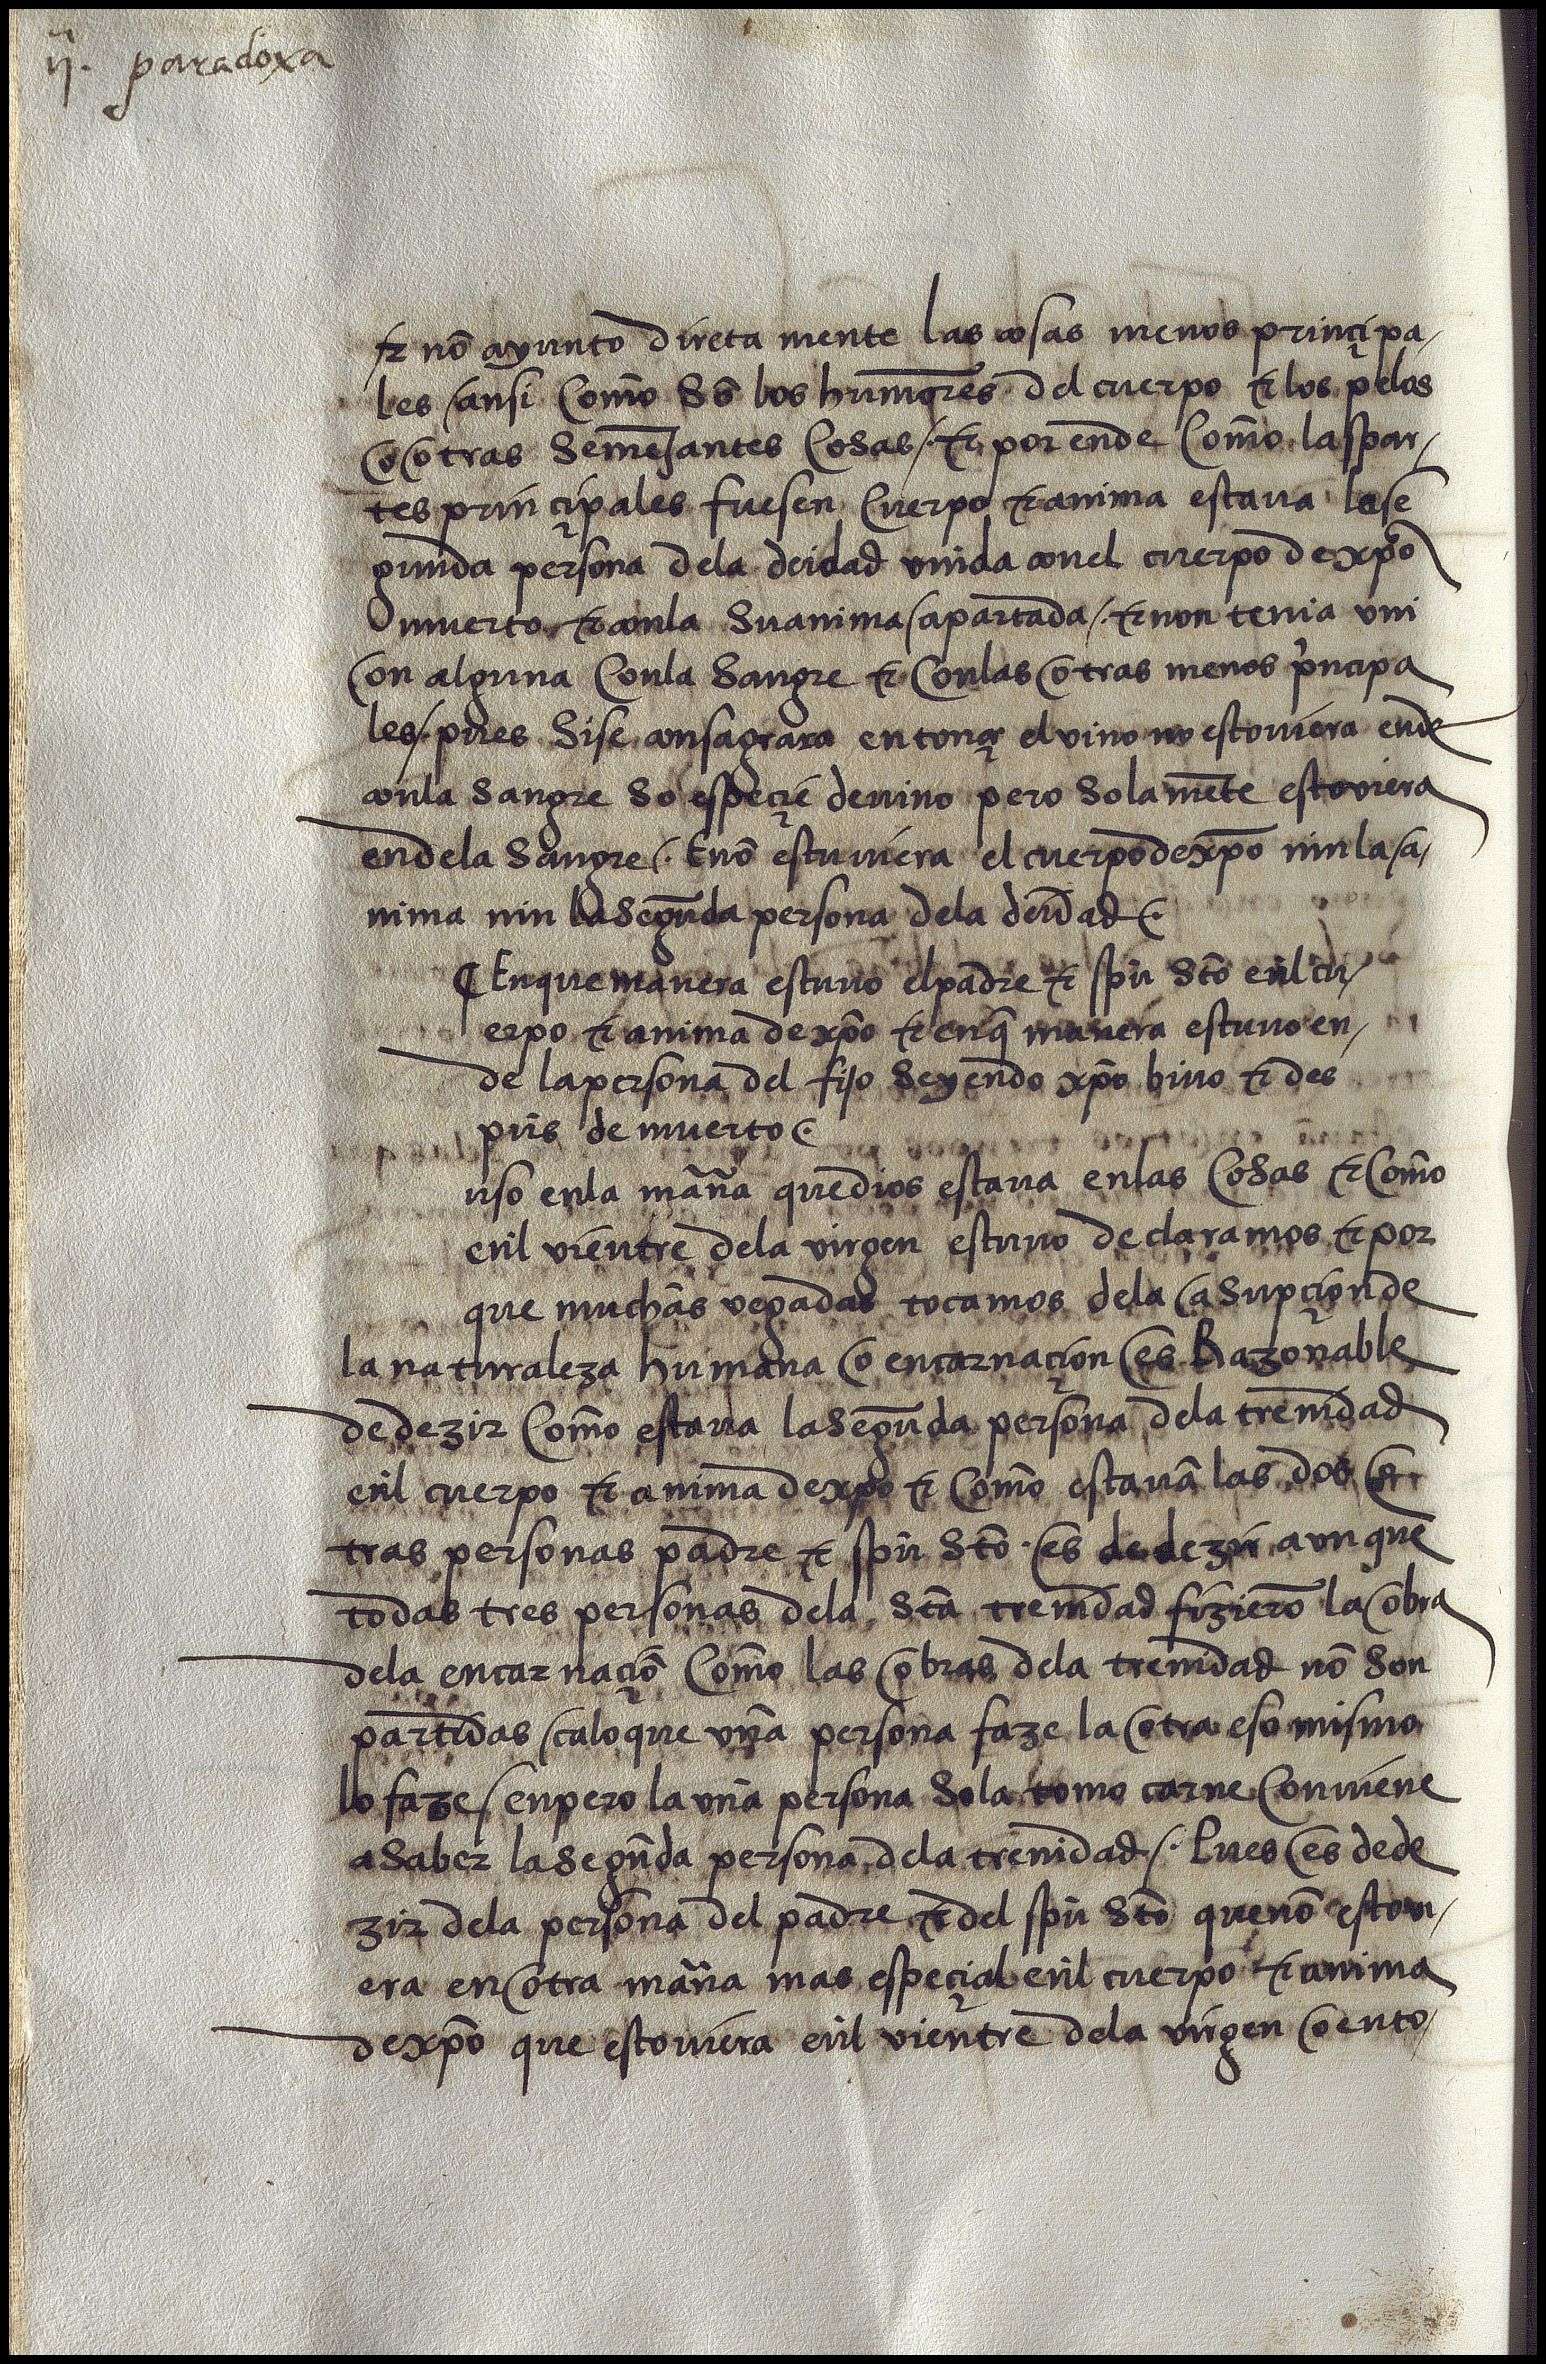 ij. paradoxa
⁊ nõ ayunto direta mente las cosas menos prinçipa/
les ansi Com̃o Sõ los hum̃ores del cuerpo ⁊ los pelos
o otras Sem̃ejantes Cosas /. ⁊ por ende Com̃o las par/
tes prinçipales fuesen Cuerpo ⁊ anima estaua la se
gunda persona dela deidad vnida conel cuerpo de xp̃o
muerto ⁊ conla Su anima apartada /. ⁊ non tenia vni
on alguna Conla Sangre ⁊ Conlas otras menos p̃ncipa
les /. pues Si se consagrara entonçe el vino no estouiera ende
conla Sangre So espeçie de vino pero Sola mẽte estouiera
ende la Sangre /. E nõ estuuiera el cuerpo de xp̃o nin la a/
nima nin la Segũda persona dela deidad /.
¶ En que manera estuuo el padre ⁊ sp̃u Stõ enl cu/
erpo ⁊ anima de xp̃o ⁊ en q̃ manera estuuo en/
de la persona del fijo Seyendo xp̃o biuo ⁊ des
pũs de muerto /.
uso enla mãña que dios estaua enlas Cosas ⁊ Com̃o
enl vientre dela virgen estuuo declaramos ⁊ por
que muchãs vegadas tocamos dela asupçion de
la naturaleza humana o encarnaçion es Razonable
de dezir Com̃o estaua la Segũda persona dela trenidad
enl cuerpo ⁊ anima de xp̃o ⁊ Com̃o estauã las dos o
tras personas padre ⁊ sp̃u Stõ. es de dezir aun que
todas tres personas dela Stã trenidad fizierõ la obra
dela encarnaçiõ Com̃o las obras dela trenidad nõ Son
partidas ca lo que vña persona faze la otra eso mismo
lo faze / enpero la vña persona Sola tomo carne Conuiene
a Saber la Segũda persona dela trenidad /. Pues es de de
zir dela persona del padre ⁊ del sp̃u Stõ que nõ estoui/
era en otra mãña mas espeçial enl cuerpo ⁊ anima
de xp̃o que estouiera enl vientre dela virgen o en to/